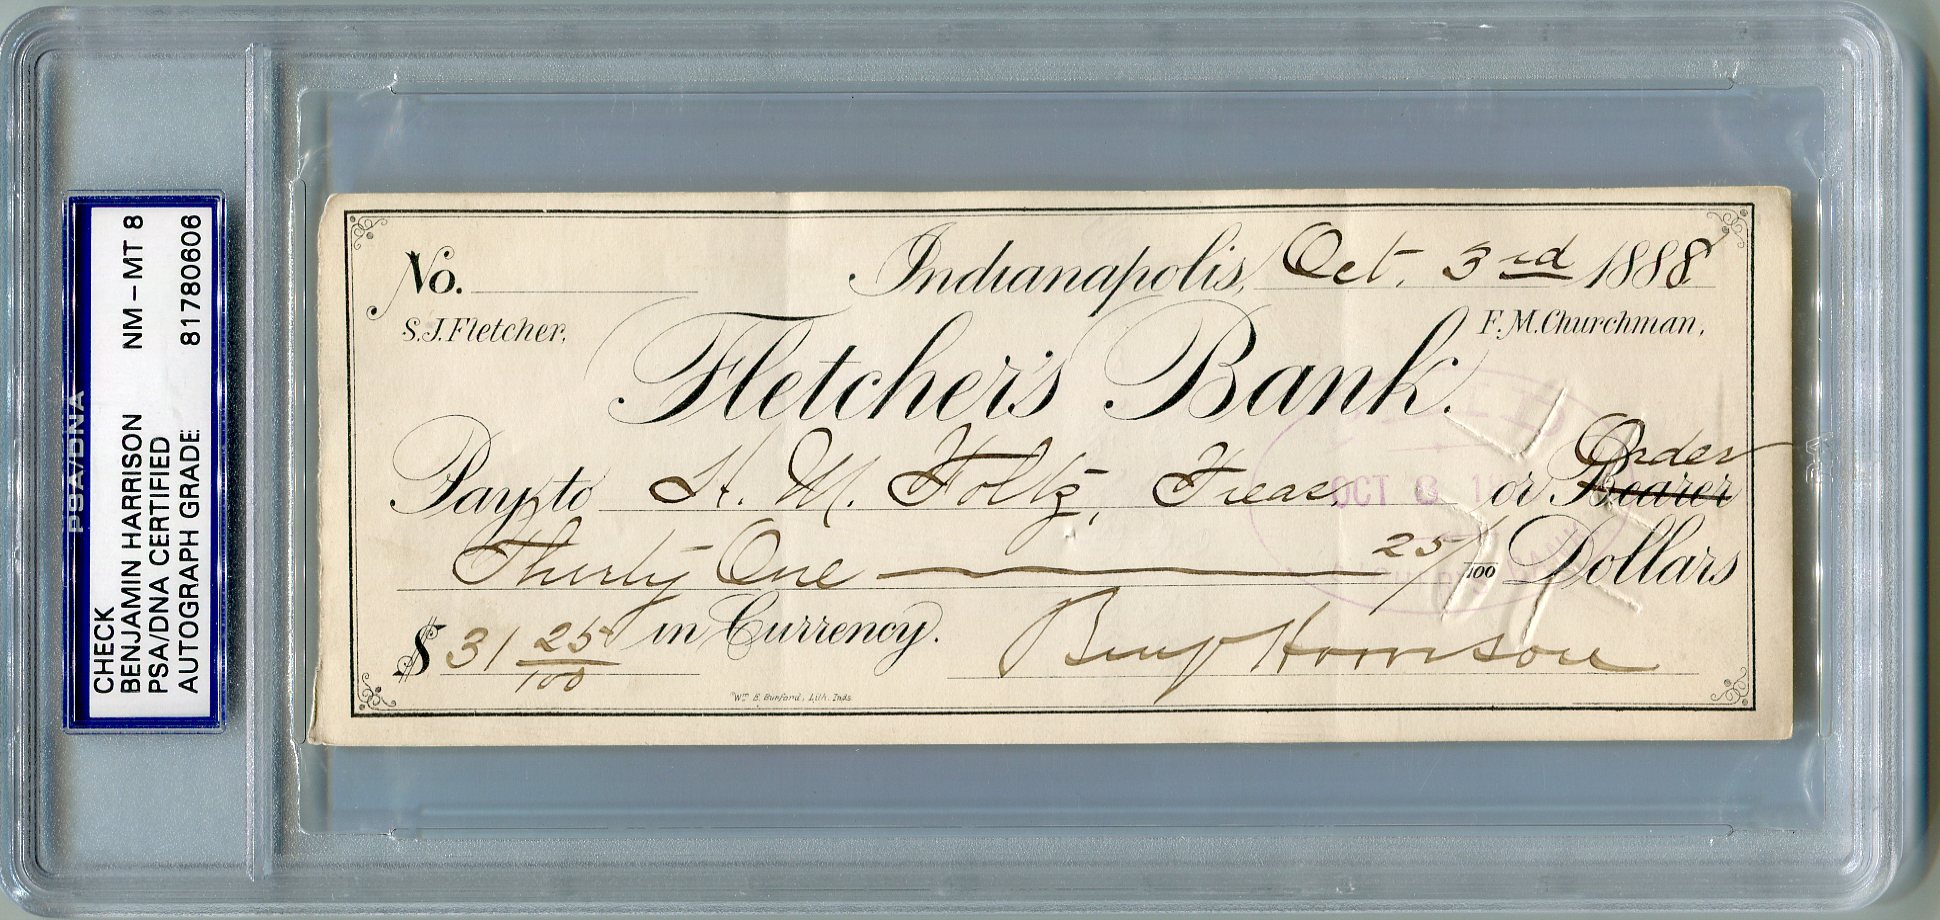 PSA/DNA
CHECK
BENJAMIN HARRISON NM-MT 8
PSA/DNA CERTIFIED
AUTOGRAPH GRADE: 81780606
No. Indianapolis, Oct. 3rd 1888
S.J. Fletcher, F.M. Churchman,
Fletcher's Bank.
Order
Pay to H. M. Foltz, Treas. or Bearer
OCT 3
Thirty One 25/100 Dollars
$ 31 25/100 in Currency.
Benj Harrison
Wm. B. Burford, Lith. Inds.